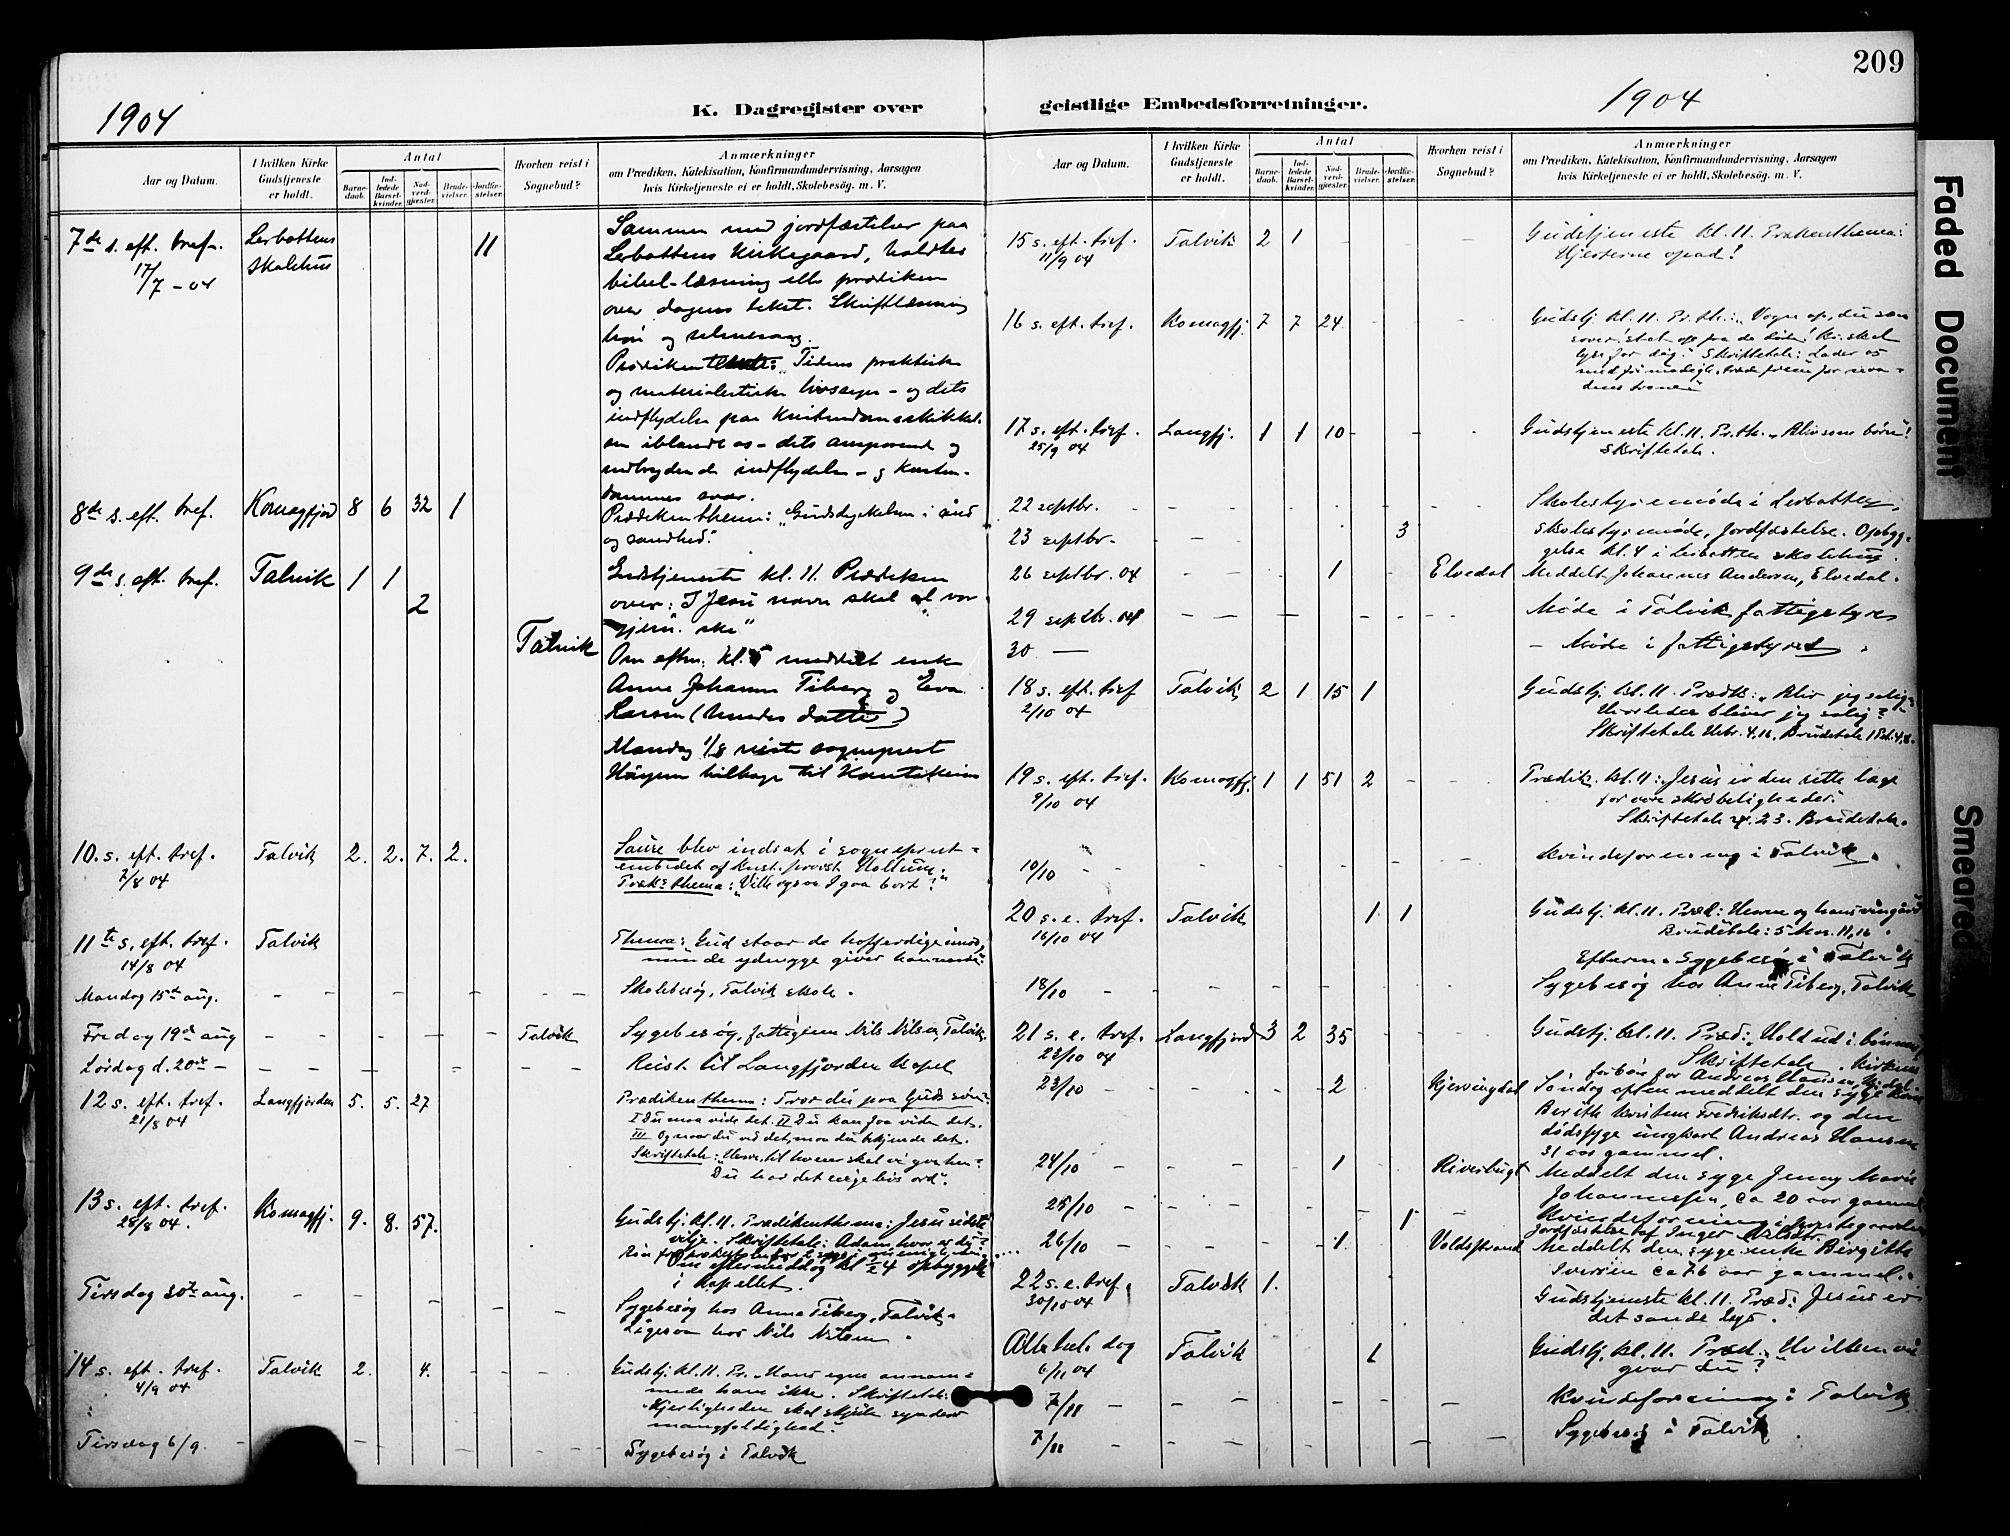 209
1904
K. Dagregister over
geistlige Embedsforretninger.
1904
Aar og Datum.
I hvilken Kirke Gudstjeneste er holdt.
Antal
Barnedaab.
Indledede Barselkvinder.
Nadverdgjester.
Brudevielser.
Jordfæstelser.
Hvorhen reist i Sognebud?
Anmærkninger
om Prædiken, Katekisation, Konfirmandundervisning, Aarsagen
hvis Kirketjeneste ei er holdt, Skolebesøg. m. V.
7de s. eft. tref. 17/7 - 04
Lerbottens skolehus
11
Sammen med jordfæstelser paa
Lerbottens Kirkegaard, holdtes
bibel-læsning eller prædiken
over dagens tekst. Skriftlæsning
bøn og salmesang.
Prædiken : "Tidens praktiske
og materialistiske livssyn - og dets
indflydelse paa
iblandt os - dets og
nedbrydende indflydelse - og
svar.
8de s. eft. tref.
Komagfjord 8 6 32 1
Prædikenthema: "Gudsdyrkelsen i ånd
og sandhed."
9de s. eft. tref.
Talvik 1 1
2
Gudstjeneste kl. 11. Prædiken
over: I Jesu navn skal al vor
gjern. ske"
Talvik
Om eftm. kl. 5 meddelt enke
Anne Johanne Tiberg og Eva
Larsen (hendes datter)
Mandag 1/8 reiste sogneprest
tilbage til Kautokeino
10. s. eft. tref. 7/8 04
Talvik 2. 2. 7. 2.
blev indsat i sogneprest-
embedet af Kust. provst
Præk. thema: "Vil ogsaa I gaa bort?"
11te s. eft. tref. 14/8 04
Talvik
Thema: "Gud staar de hoffærdige imod,
men de ydmyge giver han naade"
Mandag 15de aug.
Skolebesøg, Talvik skole.
Fredag 19de aug
Talvik
Sygebesøg, fattiglem Nils Nilsen, Talvik.
Lørdag d. 20de -
Reist til Langfjorden Kapel
12 s. eft. tref. 21/8 04
Langfjorden 5. 5. 27
Prædikenthema: Tror du paa Guds søn?
I Du maa vide det. II Du kan faa vide det.
III Og naar du ved det, maa du bekjende det.
Skriftetale: "Herre, til hvem skal vi gaa hen?
Du har det evige livs ord".
13 s. eft. tref. 28/8 04.
Komagfj. 9. 8. 57.
Gudstj. kl. 11. Prædikenthema: Jesu sidste
vilje. Skriftetale: Adam, hvor er du?
Om eftermiddag kl 4 opbyggelse
i Kapellet.
Tirsdag 30te aug.
Sygebesøg hos Anna Tiberg, Talvik.
Ligesaa hos Nils Nilsen.
14 s. eft. tref. 4/9 04
Talvik 2. 4.
Gudstj. kl. 11. Pr. "Hans egne annam-
mede ham ikke. Skriftetale:
Kjerligheden skal skjule synders
mangfoldighed."
Tirsdag 6/9.
Sygebesøg i Talvik
Aar og Datum.
I hvilken Kirke Gudstjeneste er holdt.
Antal
Barnedaab.
Indledede Barselkvinder.
Nadverdgjester.
Brudevielser.
Jordfæstelser.
Hvorhen reist i Sognebud?
Anmærkninger
om Prædiken, Katekisation, Konfirmandundervisning, Aarsagen
hvis Kirketjeneste ei er holdt, Skolebesøg. m. V.
15 s. eft. tref. 11/9 04
Talvik 2 1
Gudstjeneste kl. 11. Prækenthema:
Hjerterne opad!
16 s. eft. tref.
Komagfj. 7 7 24
Gudstj. kl. 11. Pr. th.: "Vogn op, du som
sover, stat op fra de døde! Kr. skal
lyse for dig." Skriftetale: Lader os
med frimodigh. træde frem for naa-
dens trone"
17 s. eft. tref. 25/9 04
Langfj. 1 1 10
Gudstjeneste kl. 11. Pr. th. "Bliv som børn".
Skriftetale.
22 septbr.
Skolestyremøde i Lerbotten
23 septbr. 3
Skolestyremøde, Jordfæstelse. Opbyg-
gelse kl. 4 i Lerbotten skolehus.
26 septbr. 04 1
Elvedal
Meddelt Johannes Andersen, Elvedal.
29 septbr. 04
Møde i Talvik fattigstyre
30 -
- Møde i fattigstyret
18 s. eft. tref 2/10 04
Talvik 2 1 15 1
Gudstj. kl. 11. Prædk: "Bliv jeg salig?
Hvorledes bliver jeg salig?
Skriftetale Hebr. 4,16, Brudetale 1 Pet. 4,8.
19 s. eft. tref. 9/10 04
Komagfj. 1 1 51 2
Prædik. kl. 11: "Jesus er den rette læge
for vore skrøbeligheder."
Skriftetale 23. Brudetale.
10/10
Kvindeforening i Talvik.
20 s. e. tref. 16/10 04
Talvik 1 1
Gudstj. kl. 11. Præd: Herren og hans vingård
Brudetale: 5 Mos. 11,16.
Efterm. Sygebesøg i Talvik
18/10
Sygebesøg hos Anna Tiberg, Talvik
21 s. e. tref. 23/10 04
Langfjord 3 2 35
Gudstj. kl. 11. Præd: Hold ud i bønnen,
Skriftetale. Kirkens
forbøn for Andreas Hansen,
23/10 2
Kjerringdal
Søndag aften meddelt den syge kone
Berith Kirstine Fredriksdtr. og den
dødssyge ungkarl Andreas Hansen
31 aar gammel.
24/10 1
Riversbugt
Meddelt den syge Jenny Marie
Johannessen, ca 20 aar gammel
25/10
Kvindeforening i
1
Jordfæstelse af Inger
26/10 1
Voldstrand
Meddelt den syge enke Birgitte
Iversen ca 76 aar gammel.
22 s. e. tref. 30/10 04
Talvik 1.
Gudstjeneste kl. 11. Præd: Jesus er
det sande lys.
Alle hel. dag 6/11 04
Talvik 1
Gudstj. kl. 11. Præd. "Hvilken vei
gaar du?"
7/11
Kvindeforening i Talvik
7/11
Sygebesøg i Talvik
Faded Document
Smeared